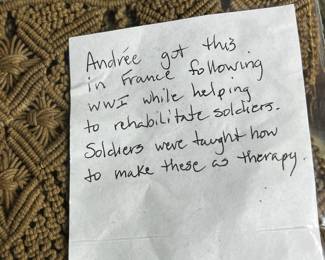 Andrée got this
in France following
WWI while helping
to rehabilitate soldiers.
Soldiers were taught how
to make these as therapy.